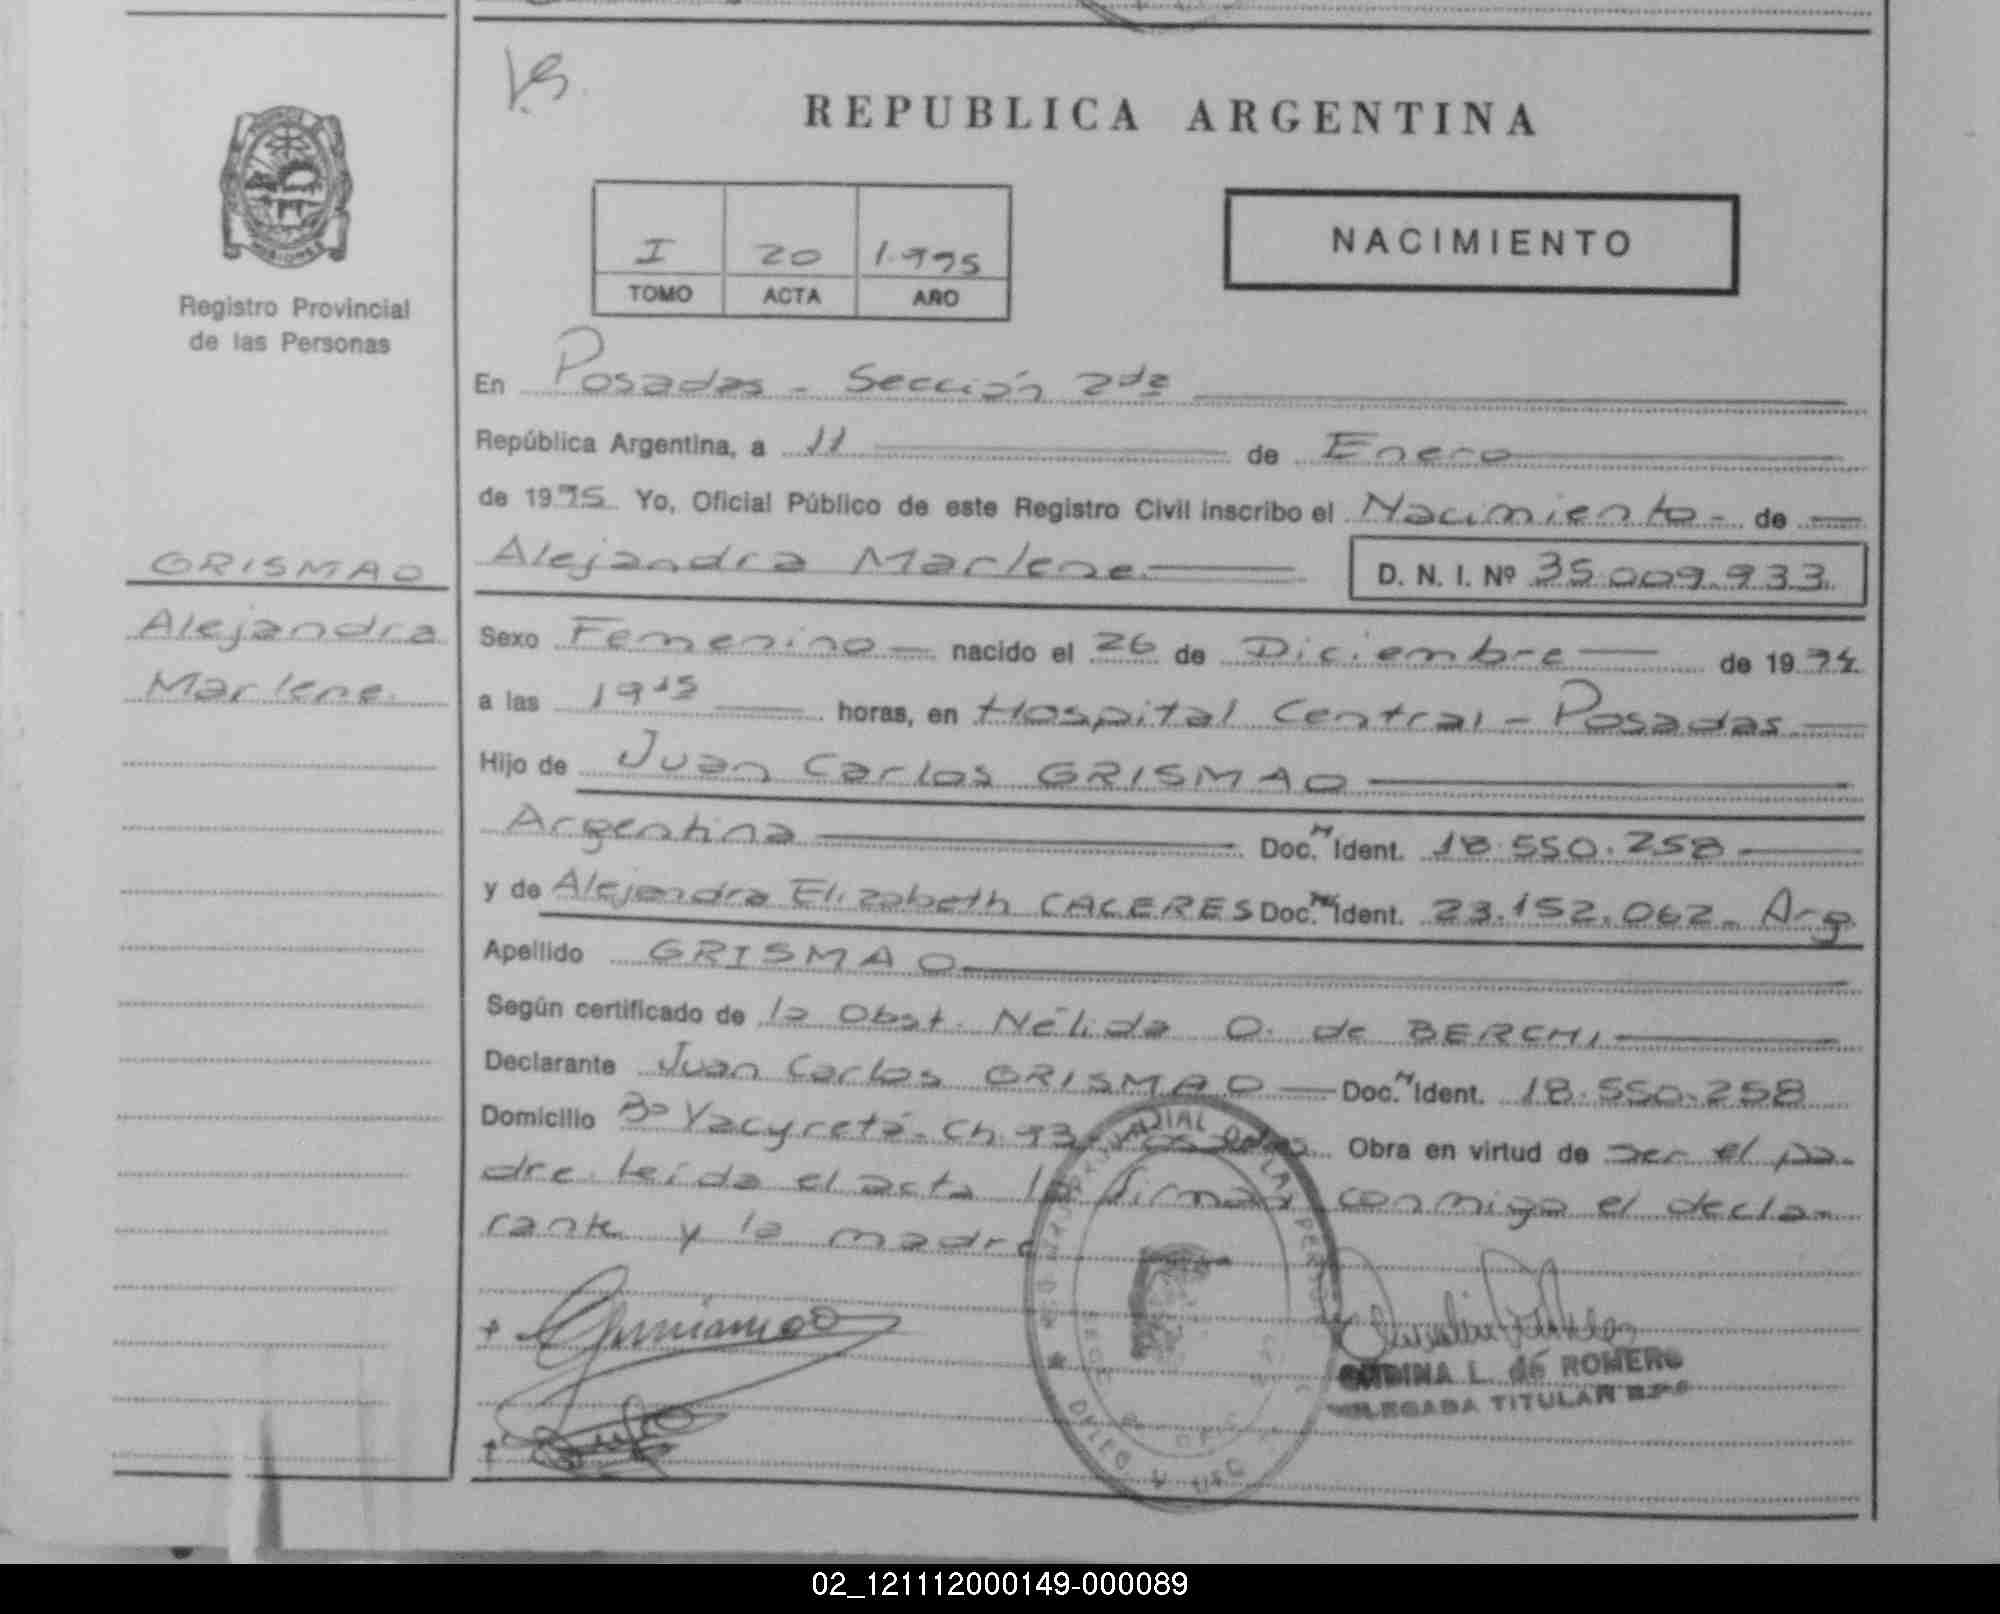 REPUBLICA ARGENTINA
I 20 1.995
TOMO ACTA AÑO
NACIMIENTO
MISIONES
Registro Provincial
de las Personas
GRISMAO
Alejandra
Marlene.
En Posadas - Sección 2da
República Argentina, a 11 de Enero
de 1995 Yo, Oficial Público de este Registro Civil inscribo el Nacimiento - de
Alejandra Marlene D. N. I. Nº 35.009.933.
Sexo Femenino nacido el 26 de Diciembre de 1994
a las 19 15 horas, en Hospital Central - Posadas
Hijo de Juan Carlos GRISMAO
Argentina Doc. Ident. 18.550.258
y de Alejandra Elizabeth CACERES Doc. Ident. 23.152.062 - Arg
Apellido GRISMAO
Según certificado de la Obst. Nélida O. de BERCHI
Declarante Juan Carlos GRISMAO Doc. Ident. 18.550.258
Domicilio Bº Yacyretá - Ch. 93 - Posadas Obra en virtud de ser el pa-
dre. leída el acta la firman conmigo el decla-
rante y la madre
L. de ROMERO
DELEGADA TITULAR
02_121112000149-000089